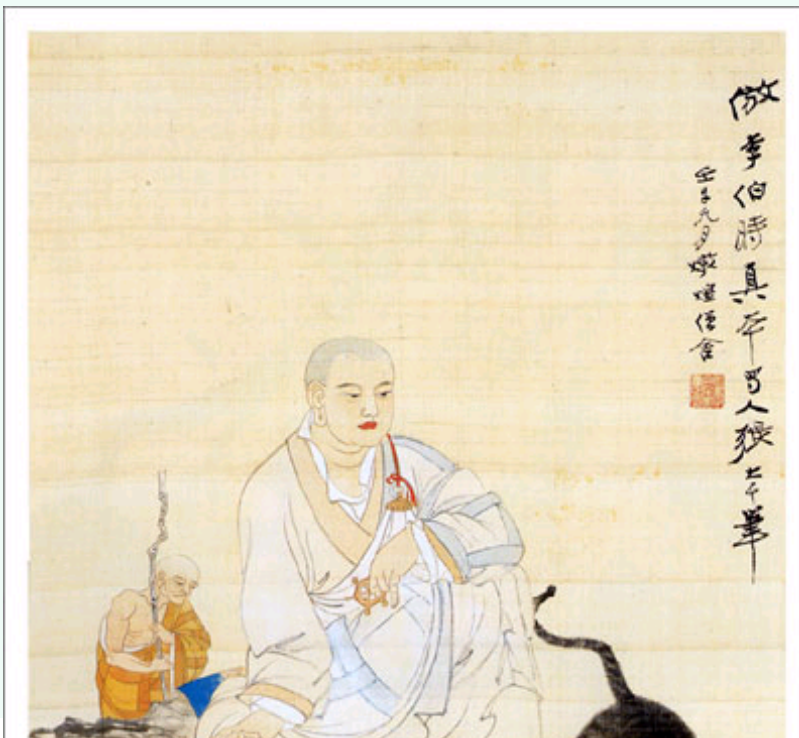 倣李伯時真本蜀人爰大千筆
壬子九月燉煌僧舍